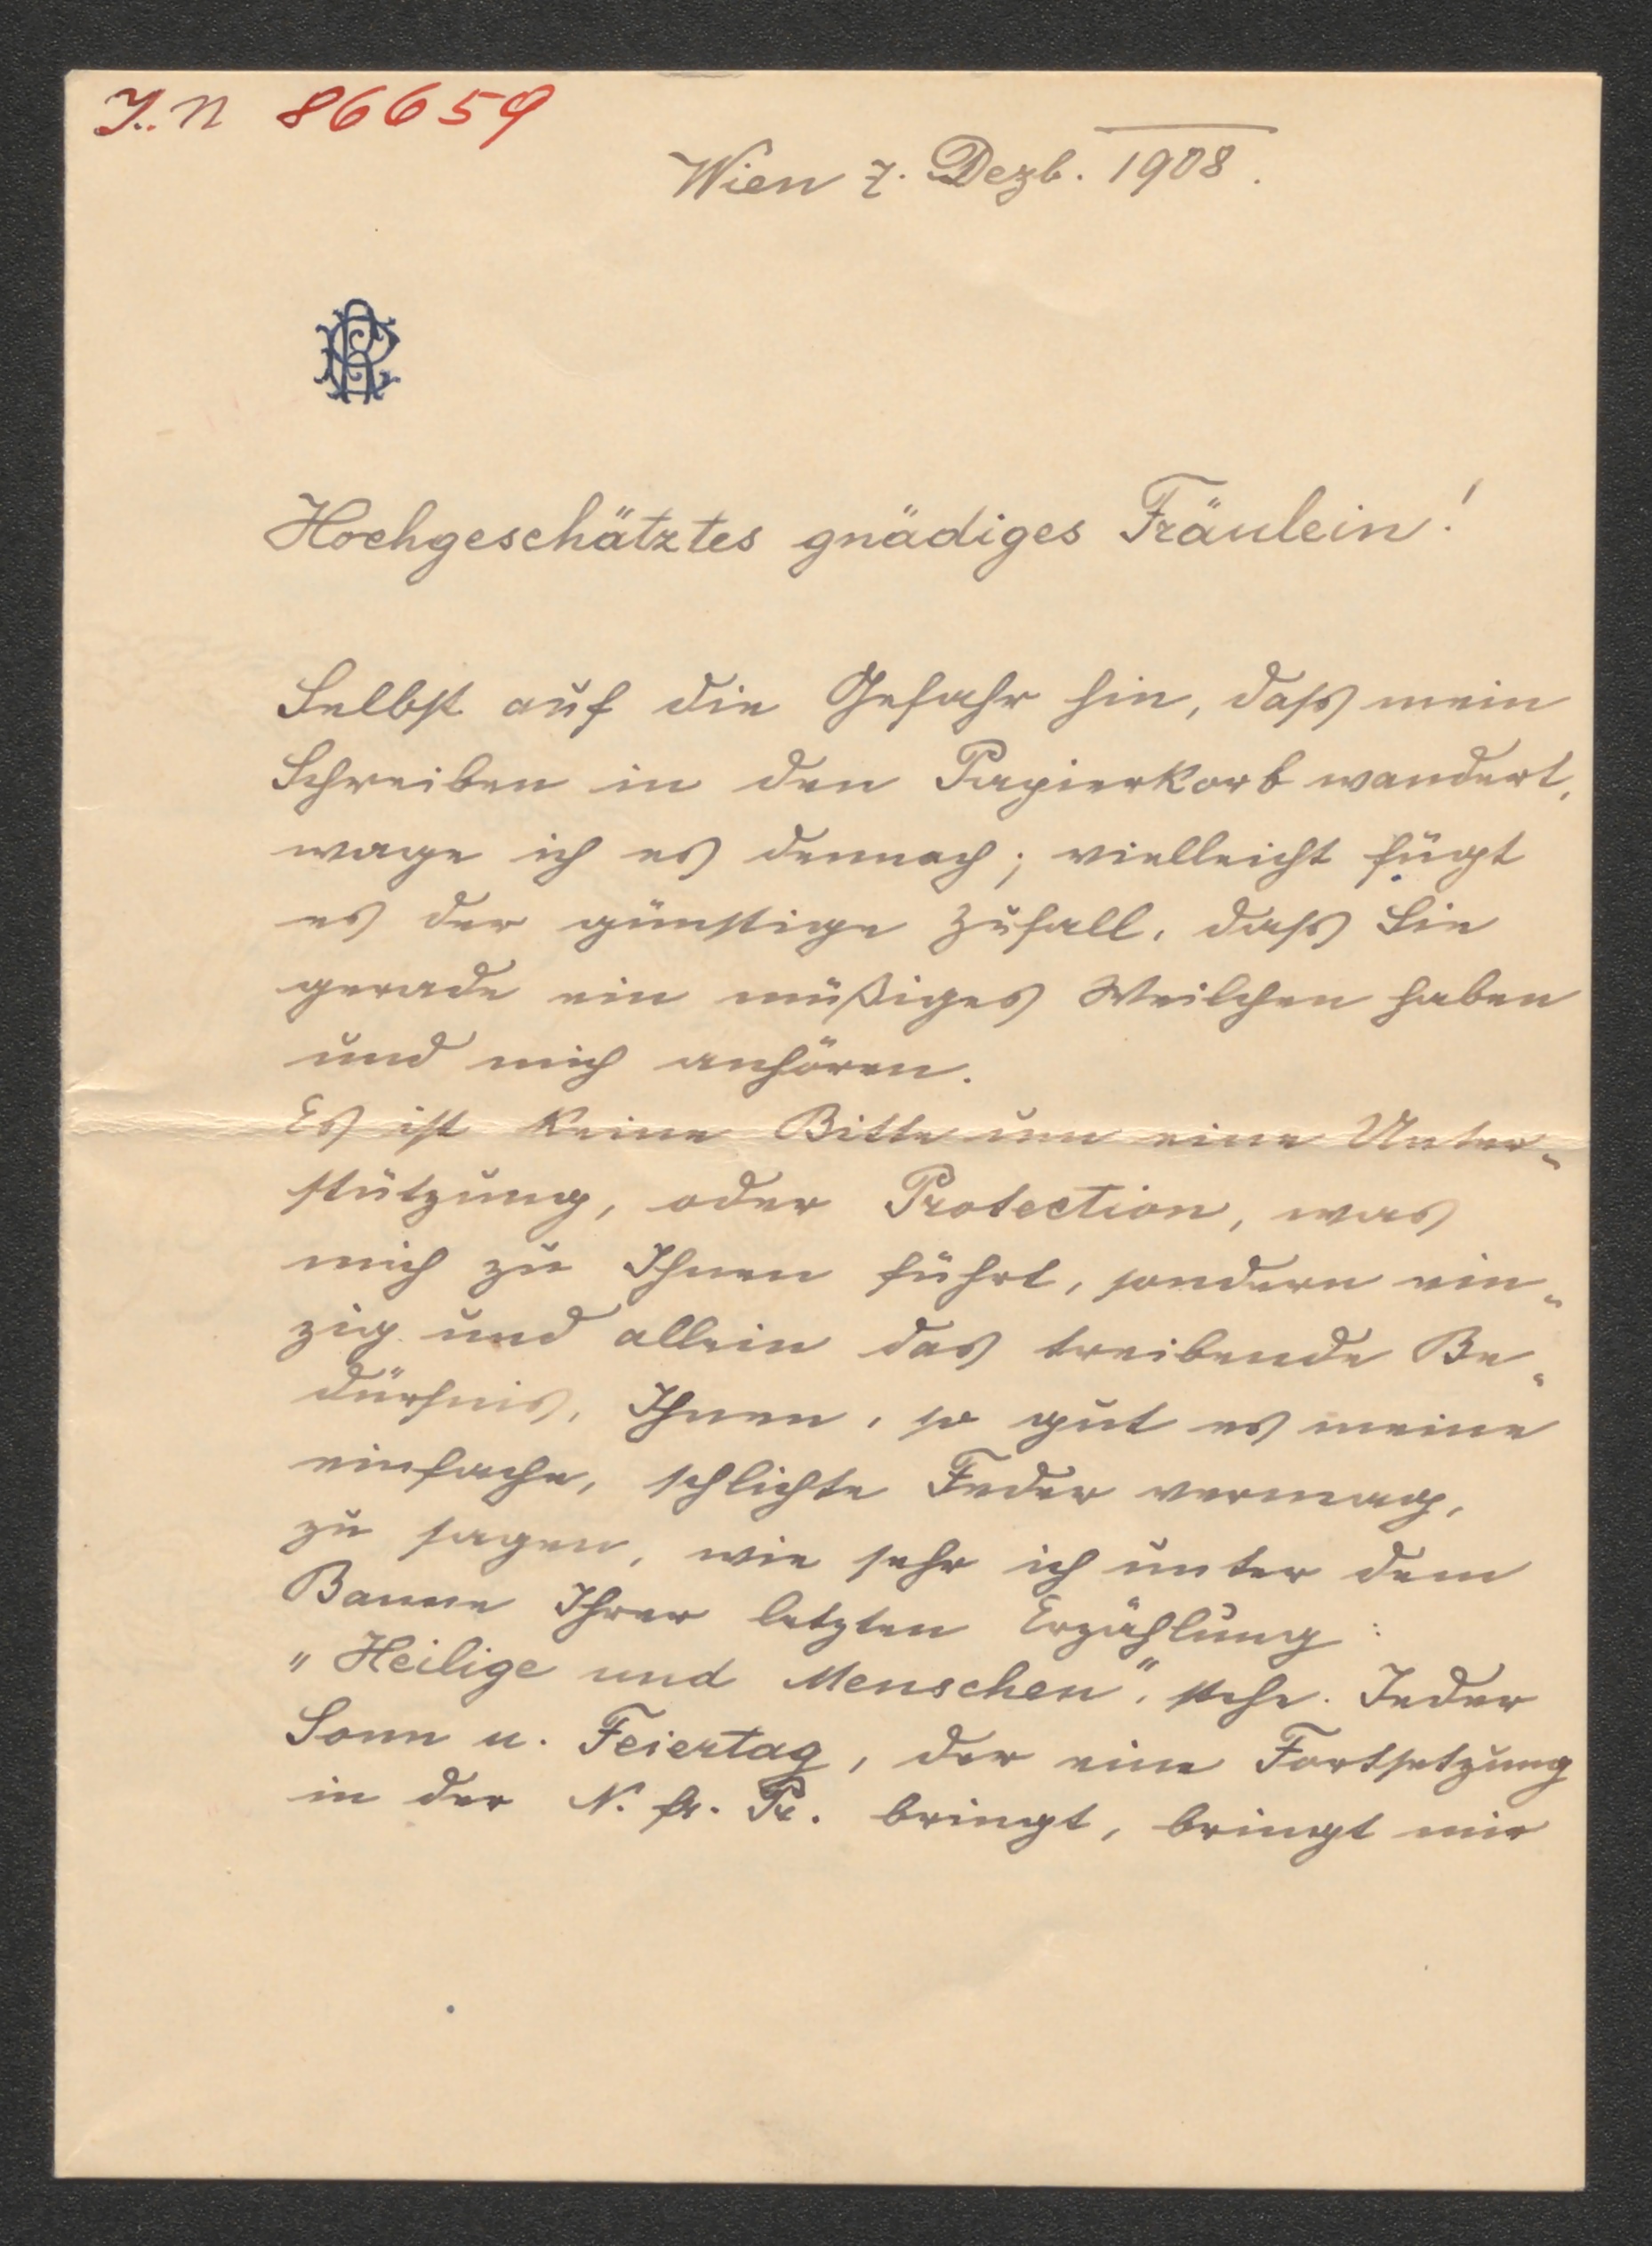 I.N 86659
Wien 7. Dezb. 1908.
Hochgeschätztes gnädiges Fräulein!
Selbst auf die Gefahr hin, dass mein
Schreiben in den Papierkorb wandert,
wage ich es dennoch; vielleicht fügt
es der günstige Zufall, dass Sie
gerade ein müßiges Weilchen haben
und mich anhören.
Es ist keine Bitte um eine Unter-
stützung, oder Protection, was
mich zu Ihnen führt, sondern ein-
zig und allein das treibende Be-
dürfnis, Ihnen, so gut es meine
einfache, schlichte Feder vermag,
zu sagen, wie sehr ich unter dem
Banne Ihrer letzten Erzählung:
"Heilige und Menschen", stehe. Jeder
Sonn u. Feiertag, der eine Fortsetzung
in der N. fr. Pr. bringt, bringt mir